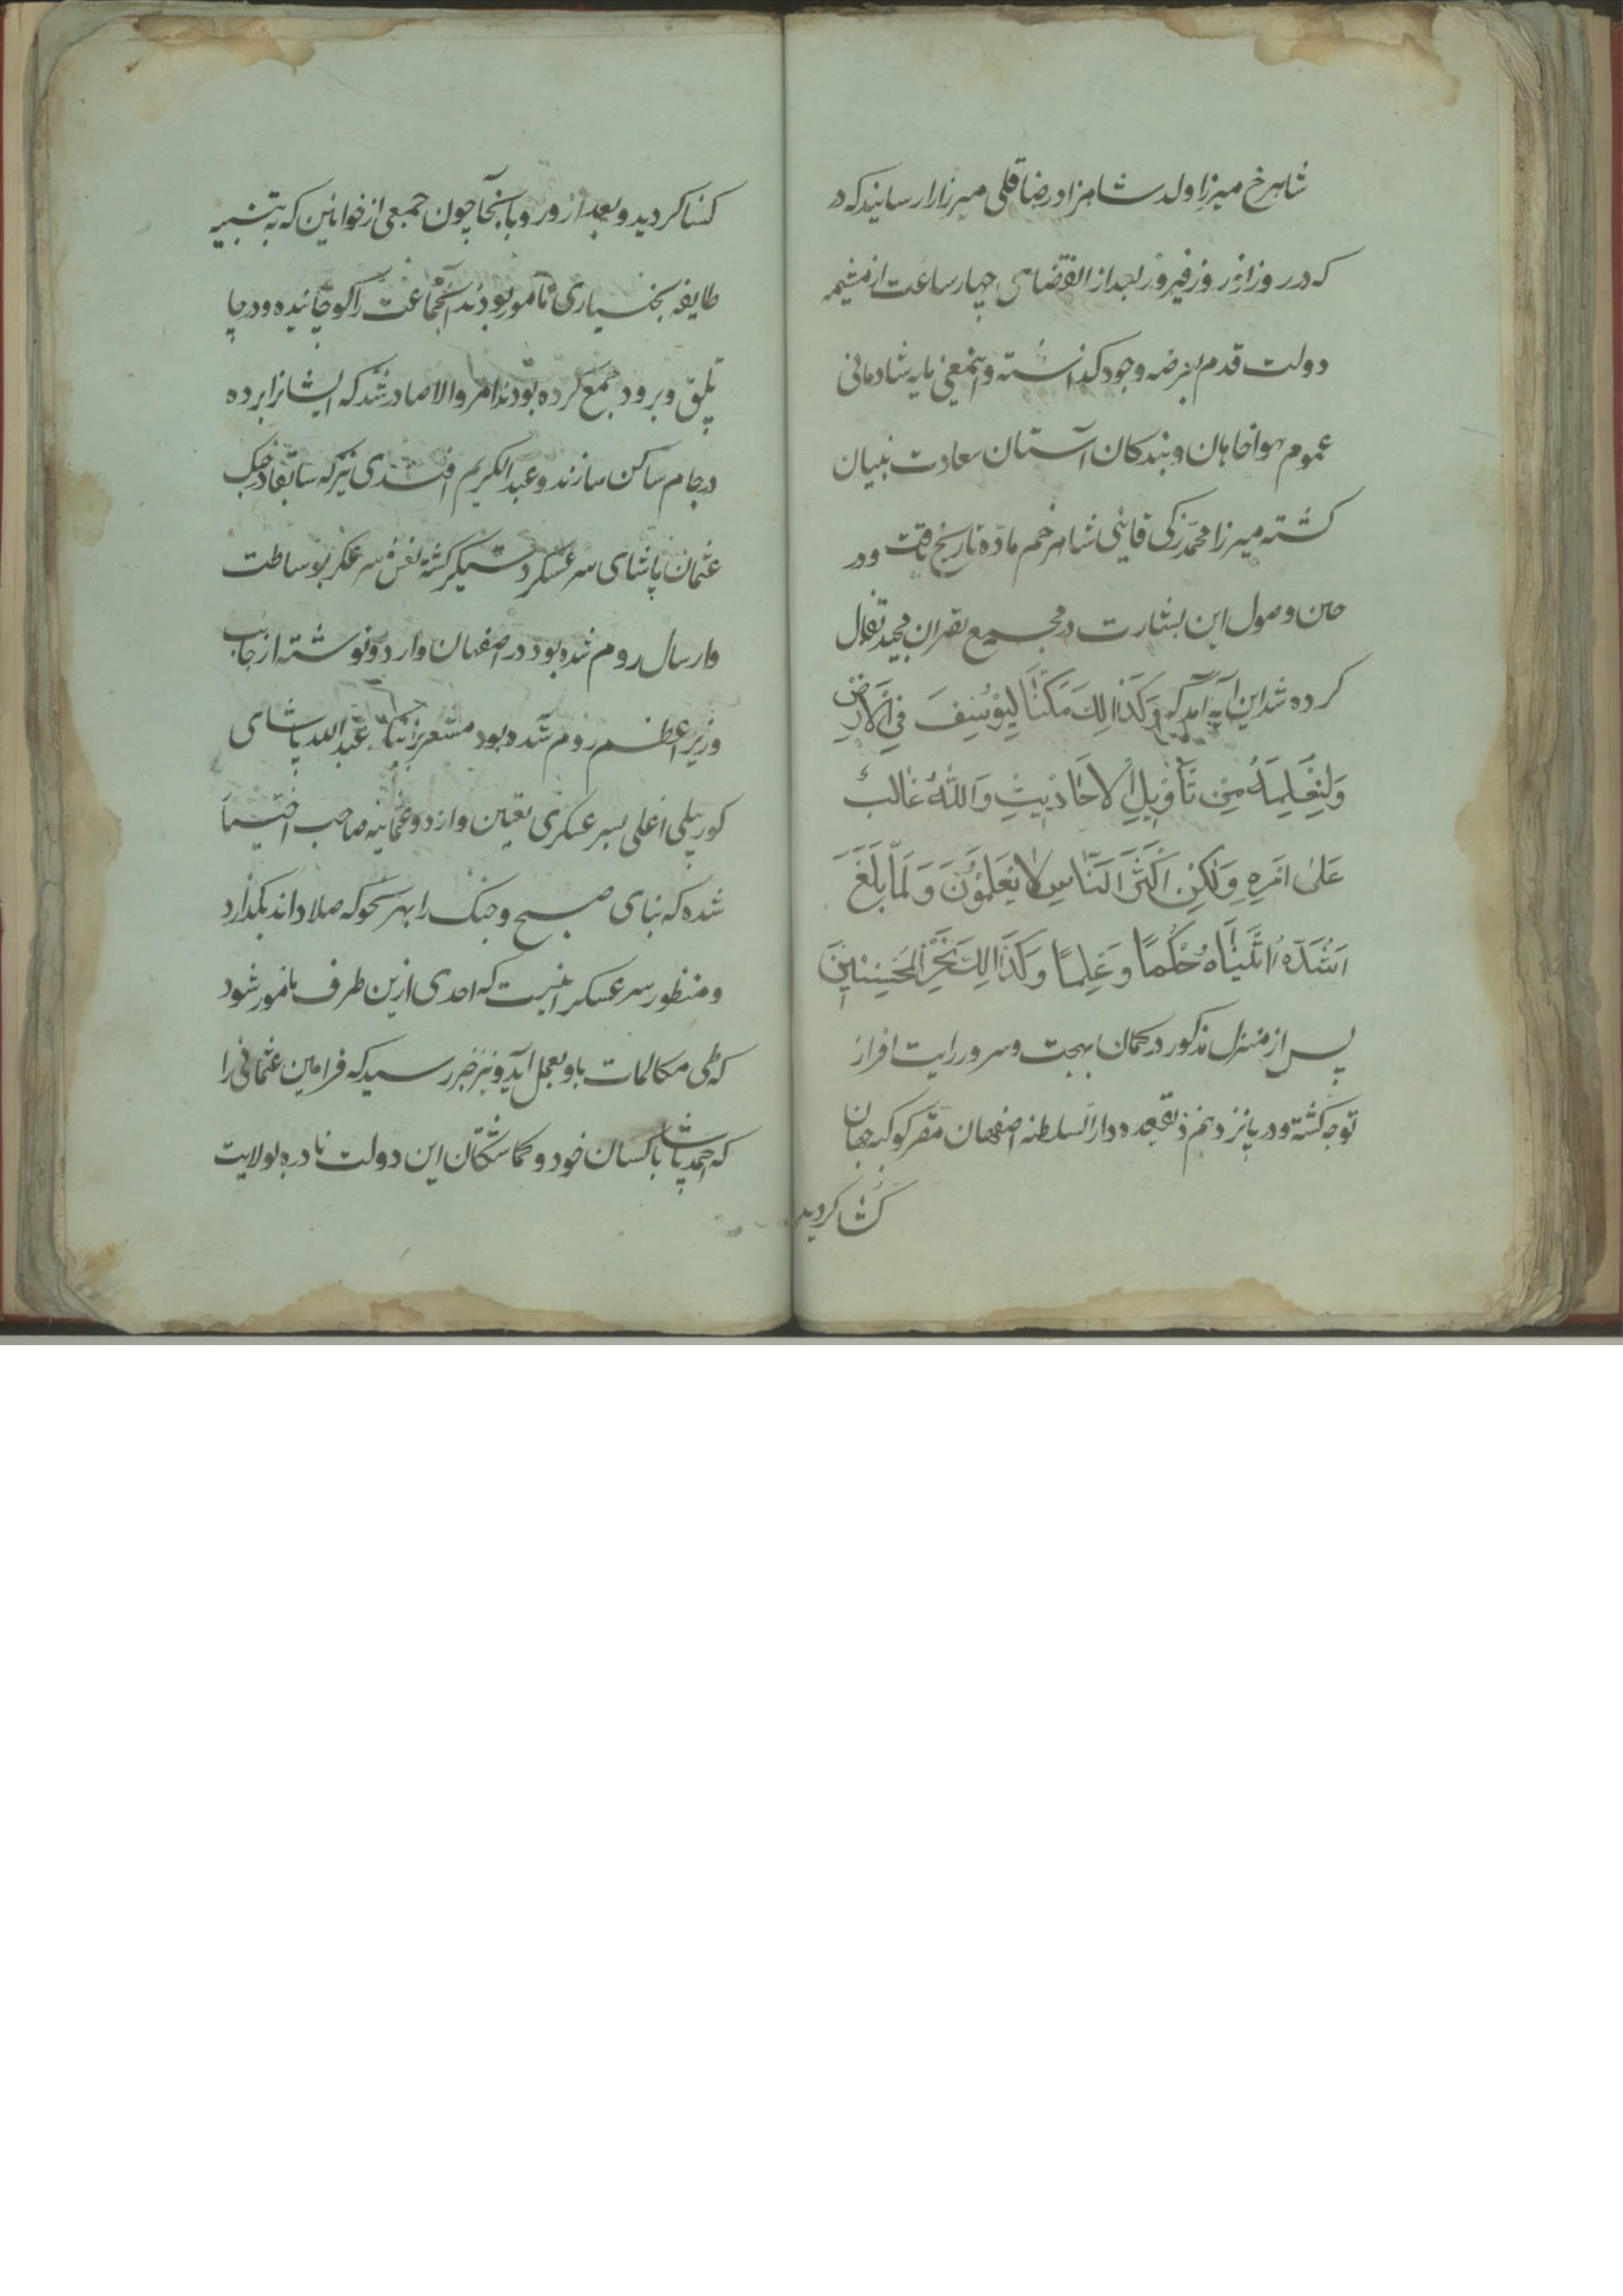 شاهرخ میرزا ولد شاهزاده رضاقلی میرزا را رسانید که در
که در روز نوروز فیروز بعد از انقضای چهار ساعت از مشیمه
دولت قدم بعرصه وجود گذاشته و اینمعنی مایه شادمانی
عموم هواخاهان و بندکان آستان سعادت بنیان
کشته میرزا محمد زکی قاینی شاهرخم ماده تاریخ یافت و در
حین وصول این بشارت در مجمع بقران مجید تفال
کرده شد این آیه آمد که وَکَذَالِكَ مَکَّنَّا لِیُوسُفَ فِی الاَرضِ
وَلِنُعَلِمَهُ مِن تَأوِیلِ الاَحَادِیثِ وَاللهُ غَالِبٌ
عَلیٰ اَمرِهِ وَلٰکِن اَکثَرَ النَّاسِ لا یَعلَمُونَ وَ لَمَّا بَلَغَ
اَشُدَّهُ اتَینَاهُ حُکمًا وَعِلمًا وَکَذَالِكَ نَجزِی المُحسِنِینَ
پس از منزل مذکور در کمان بهجت و سرور رایت افراز
توجه کشته و در پانزدهم ذیقعده دارالسلطنه اصفهان مقر کوکبه جهان
کشا کردید
کشا کردید و بعد از ورود بانجا چون جمعی از خوانین که به تنبیه
طایفه بختیاری مامور بودند آنجماعت را کوچانیده و در چا
پلق و برود جمع کرده بودند امر والا صادر شد که ایشانرا برده
در جام ساکن سازند و عبدالکریم افندی نیز که سابقا در جنک
عثمان پاشای سر عسکر دستیکر کشته نعش سر عسکر بوساطت
و ارسال روم شده بود در اصفهان وارد و نوشته از جانب
وزیر اعظم روم آمده بود مشعر بر اینکه عبدالله پاشای
کورپیلی اغلی بسر عسکری تعیین و از دو عثمانیه صاحب اختیار
شده که بنای صلح و جنک را بهر نحو که صلاح داند بکذارد
و منظور سر عسکر اینست که احدی ازین طرف مامور شود
که طی مکالمات باو بعمل آید و نیز خبر رسید که فرامین عثمانی را
که احمد پاشا با کسان خود و کماشتکان این دولت نادره بولایت